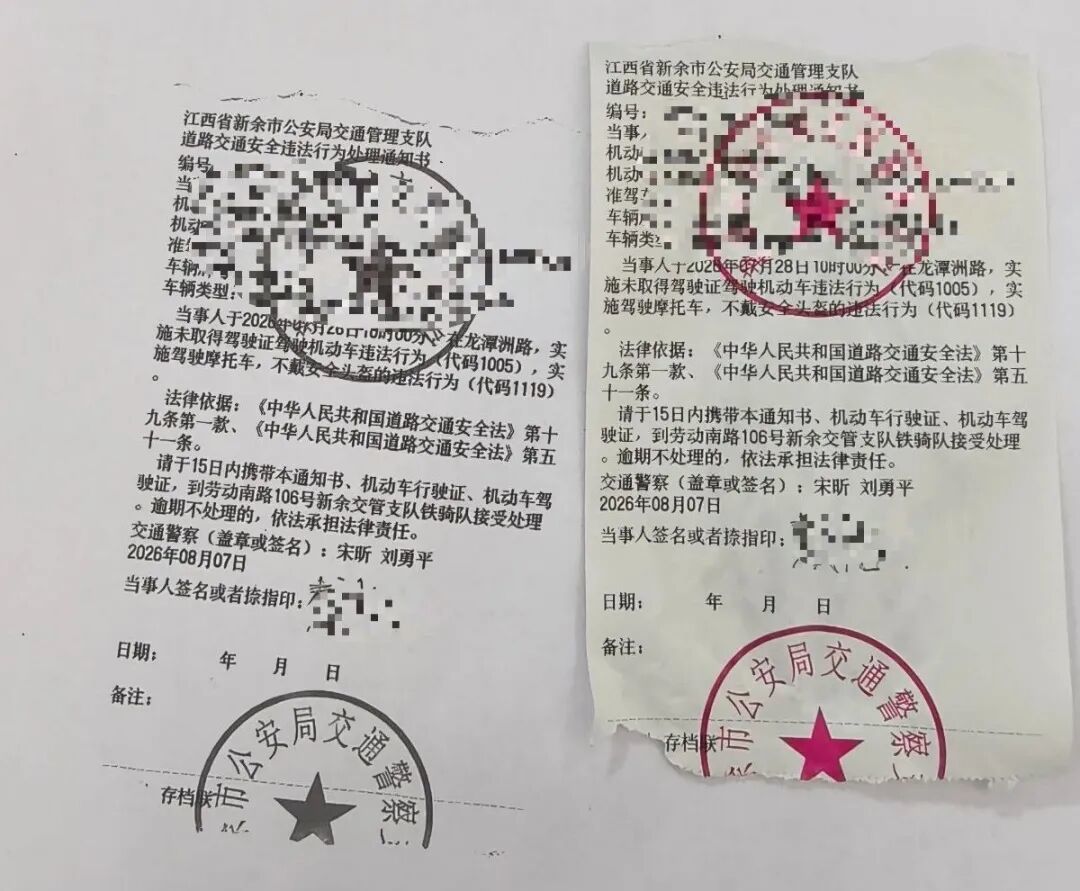 江西省新余市公安局交通管理支队
道路交通安全违法行为处理通知书
编号
当
机
机动
准
车辆
车辆类型:
当事人于2026年 月 日10时00分、在龙潭洲路，实
施未取得驾驶证驾驶机动车违法行为（代码1005），实
施驾驶摩托车，不戴安全头盔的违法行为（代码1119）
。
法律依据：《中华人民共和国道路交通安全法》第十
九条第一款、《中华人民共和国道路交通安全法》第五
十一条。
请于15日内携带本通知书、机动车行驶证、机动车驾
驶证，到劳动南路106号新余交管支队铁骑队接受处理
。逾期不处理的，依法承担法律责任。
交通警察（盖章或签名）：宋昕 刘勇平
2026年08月07日
当事人签名或者捺指印：
日期： 年 月 日
备注：
存档联
市公安局交通警察
江西省新余市公安局交通管理支队
道路交通安全违法行为处理通知书
编号:
当事
机动
机动
准驾
车辆
车辆类
当事人于2026年 月28日10时00分、在龙潭洲路，实
施未取得驾驶证驾驶机动车违法行为（代码1005），实
施驾驶摩托车，不戴安全头盔的违法行为（代码1119）
。
法律依据：《中华人民共和国道路交通安全法》第十
九条第一款、《中华人民共和国道路交通安全法》第五
十一条。
请于15日内携带本通知书、机动车行驶证、机动车驾
驶证，到劳动南路106号新余交管支队铁骑队接受处理
。逾期不处理的，依法承担法律责任。
交通警察（盖章或签名）：宋昕 刘勇平
2026年08月07日
当事人签名或者捺指印：
日期： 年 月 日
备注：
存档联
市公安局交通警察